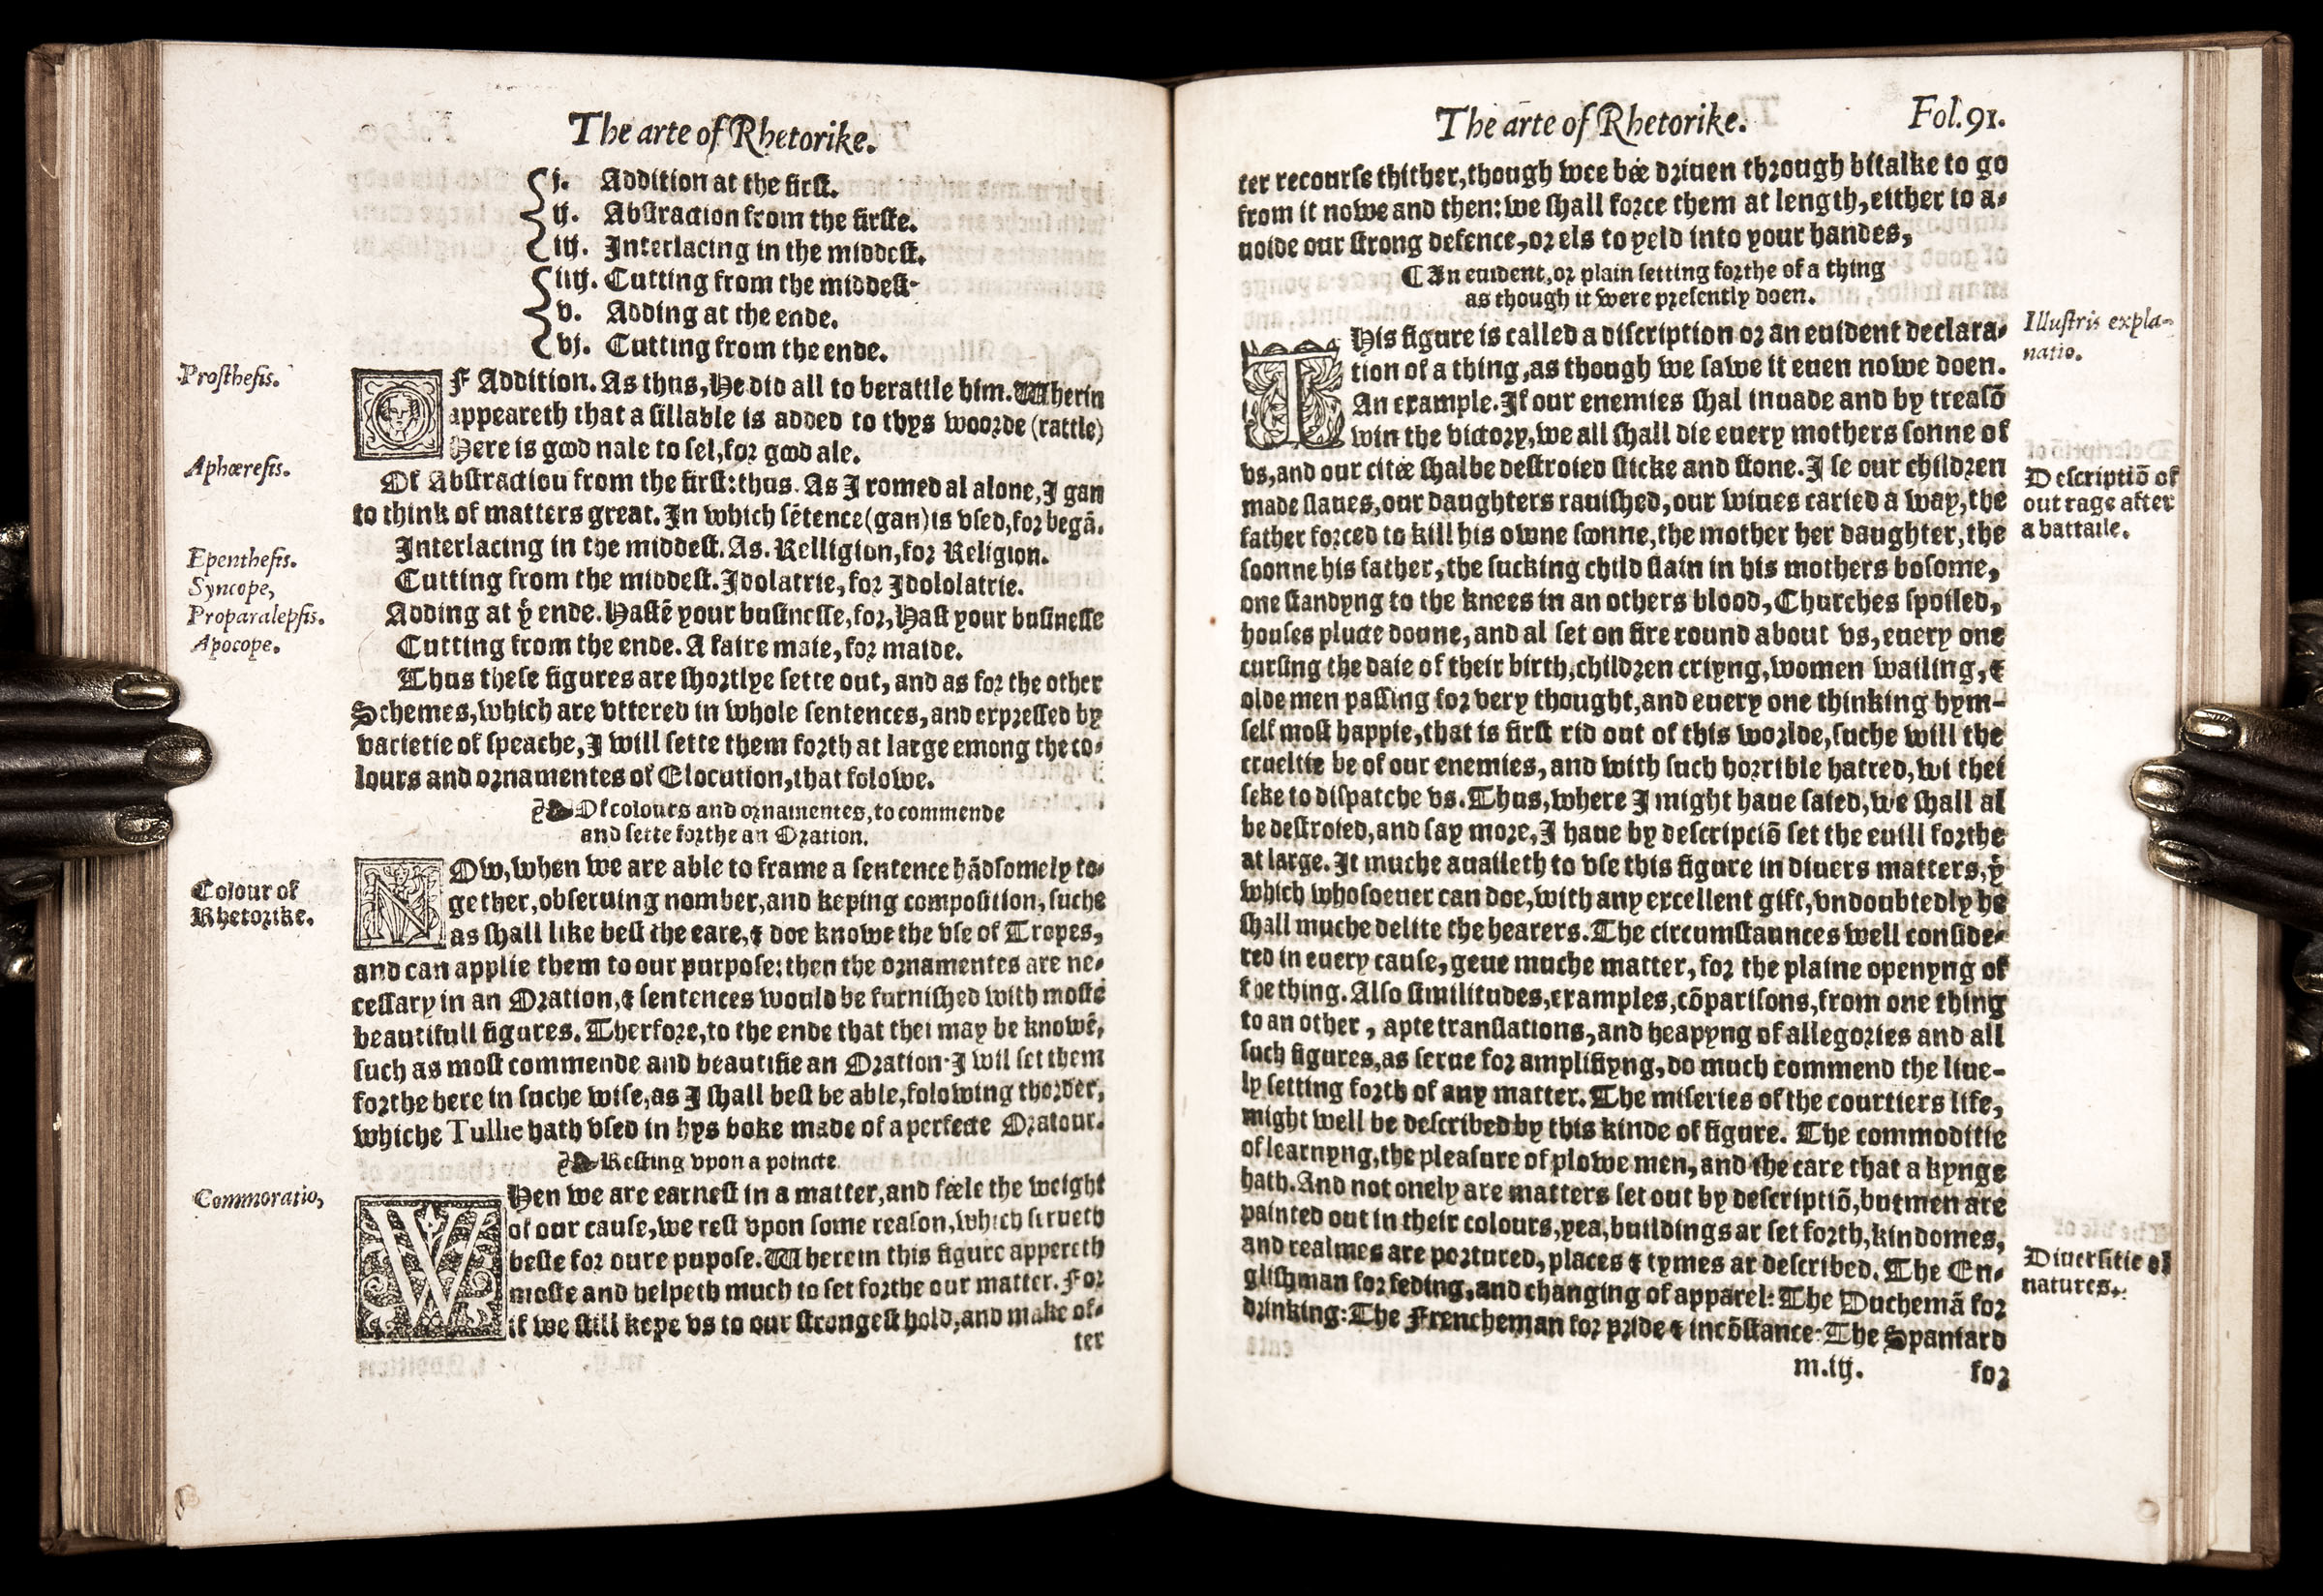 The arte of Rhetorike.
j. Addition at the first.
ij. Abstraction from the firste.
iij. Interlacing in the middest.
iiij. Cutting from the middest.
v. Adding at the ende.
vj. Cutting from the ende.
Prosthesis.
OF Addition. As thus, He did all to berattle him. Wherin
appeareth that a sillable is added to thys woorde (rattle)
Here is good nale to sel, for good ale.
Aphæresis.
Of Abstractiou from the first: thus. As I romed al alone, I gan
to think of matters great. In which sētence (gan) is vsed, for begā.
Epenthesis.
Interlacing in the middest. As. Relligion, for Religion.
Syncope,
Cutting from the middest. Idolatrie, for Idololatrie.
Proparalepsis.
Adding at yͤ ende. Hastē your businesse, for, Hast your businesse
Apocope.
Cutting from the ende. A faire maie, for maide.
Thus these figures are shortlye sette out, and as for the other
Schemes, which are vttered in whole sentences, and expressed by
varietie of speache, I will sette them forth at large emong the co-
lours and ornamentes of Elocution, that folowe.
Of colours and ornamentes, to commende
and sette forthe an Oration.
Colour of
Rhetorike.
NOw, when we are able to frame a sentence hādsomely to-
gether, obseruing nomber, and keping composition, suche
as shall like best the eare, & doe knowe the vse of Tropes,
and can applie them to our purpose: then the ornamentes are ne-
cessary in an Oration, & sentences would be furnished with moste
beautifull figures. Therfore, to the ende that thei may be knowē,
such as most commende and beautifie an Oration. I wil set them
forthe here in suche wise, as I shall best be able, folowing thorder,
whiche Tullie hath vsed in hys boke made of a perfecte Oratour.
Resting vpon a poincte
Commoratio,
WHen we are earnest in a matter, and feele the weight
of our cause, we rest vpon some reason, which serueth
beste for oure pupose. Wherein this figure appereth
moste and helpeth much to set forthe our matter. For
if we still kepe vs to our strongest hold, and make of-
ter
The arte of Rhetorike. Fol. 91.
ter recourse thither, though wee bee driuen through bitalke to go
from it nowe and then: we shall force them at length, either to a-
uoide our strong defence, or els to yeld into your handes,
¶ An euident, or plain setting forthe of a thing
as though it were presently doen.
Illustris expla-
natio.
THis figure is called a discription or an euident declara-
tion of a thing, as though we sawe it euen nowe doen.
An example. If our enemies shal inuade and by treasō
win the victory, we all shall die euery mothers sonne of
vs, and our citee shalbe destroied sticke and stone. I se our children
Descriptiō of
out rage after
a battaile.
made slaues, our daughters rauished, our wiues caried a way, the
father forced to kill his owne sonne, the mother her daughter, the
soonne his father, the sucking child slain in his mothers bosome,
one standyng to the knees in an others blood, Churches spoiled,
houses plucte doune, and al set on fire round about vs, euery one
cursing the daie of their birth, children criyng, women wailing, &
olde men passing for very thought, and euery one thinking hym-
self most happie, that is first rid out of this worlde, suche will the
crueltie be of our enemies, and with such horrible hatred, wi thei
seke to dispatche vs. Thus, where I might haue saied, we shall al
be destroied, and say more, I haue by descripciō set the euill forthe
at large. It muche auaileth to vse this figure in diuers matters, yͤ
which whosoeuer can doe, with any excellent gift, vndoubtedly he
shall muche delite the hearers. The circumstaunces well conside-
red in euery cause, geue muche matter, for the plaine openyng of
the thing. Also similitudes, examples, cōparisons, from one thing
to an other, apte translations, and heapyng of allegories and all
such figures, as serue for amplifiyng, do much commend the liue-
ly setting forth of any matter. The miseries of the courtiers life,
might well be described by this kinde of figure. The commoditie
of learnyng, the pleasure of plowe men, and the care that a kynge
hath. And not onely are matters set out by descriptiō, but men are
painted out in their colours, yea, buildings ar set forth, kindomes,
and realmes are portured, places & tymes ar described. The En-
Diuersitie of
natures.
glishman for feding, and changing of apparel: The Duchemā for
drinking: The Frencheman for pride & incōstance. The Spaniard
m.iij. for